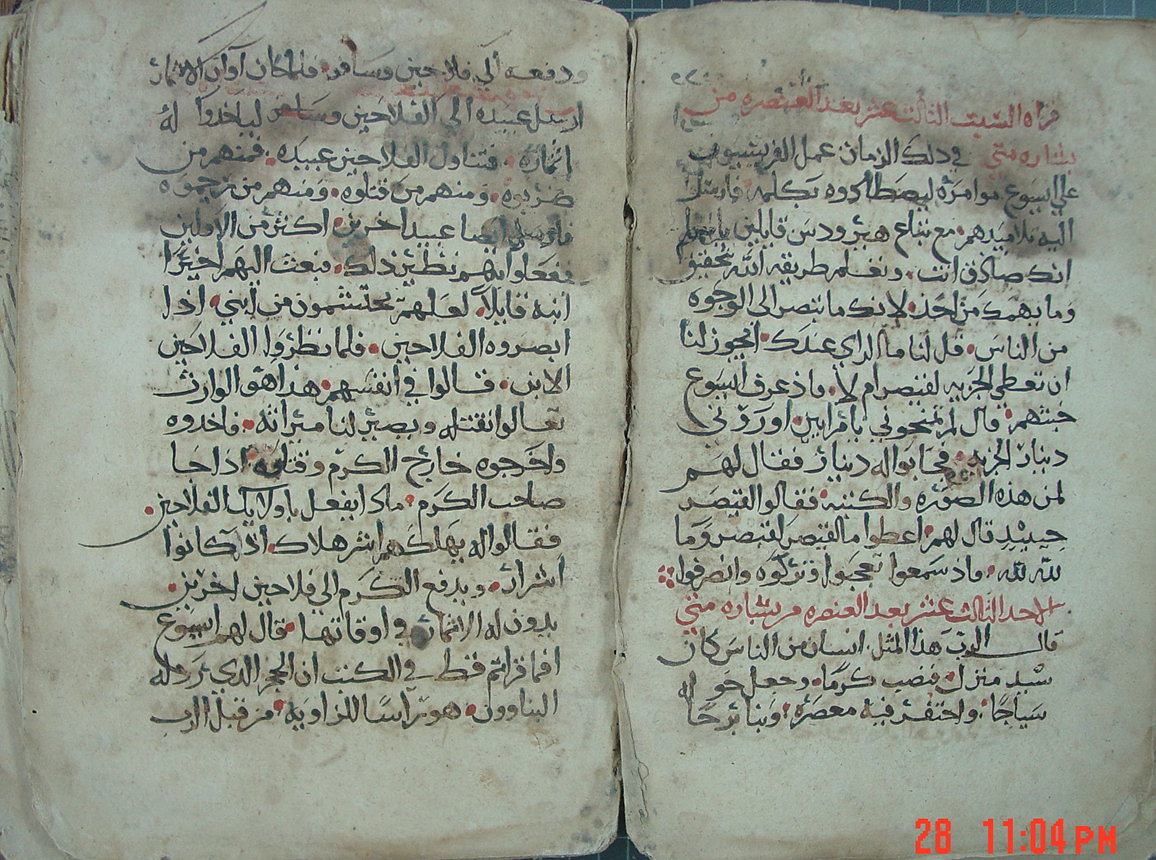 قراة السبت الثالث عشر بعد العنصره من
بشاره متي في دلك الزمان عمل الفريسيون
علي ايسوع موامره ليصطادوه بكلمه فارسلوا
اليه تلاميدهم مع تباع هيرودس قايلين يامعلم
انك صادق انت وتعلم طريقه الله بتحقيق
وما يهمك من احد لانك ما تبصر الى الوجوه
من الناس قل لنا ما الراي عندك ايجوز لنا
ان نعطي الجزيه لقيصر ام لا واذ عرف ايسوع
خبتهم قال لم تمتحنوني يا مرايين اوروني
دينار الجزيه فجابوا له دينار فقال لهم
لمن هذه الصوره والكتبه فقالوا لقيصر
حينيذ قال لهم اعطوا ما لقيصر لقيصر وما
لله لله واذ سمعوا تعجبوا وتركوه وانصرفوا
الاحد الثالث عشر بعد العنصره من بشاره متي
قال الرب هذا المثل انسان من الناس كان
سيد منزل فنصب كرما وجعل حوله
سياجا واحتفر فيه معصره وبنا برجا
ودفعه الي فلاحين وسافر فلما كان اوان الاثمار
ارسل عبيده الى الفلاحين ليا خدوا له
اثماره فتناول الفلاحين عبيده فمنهم من
ضربوه ومنهم من قتلوه ومنهم من رجموه
فارسل ايضا عبيدا اخرين اكثر من الاولين
ففعلوا بهم نظير ذلك فبعث اليهم اخيرا
ابنه قايلا لعلهم يحتشمون من ابني ادا
ابصروه الفلاحين فلما نظروا الفلاحين
الابن قالوا في انفسهم هدا هو الوارث
تعالوا نقتله ويصير لنا ميراثه فاخدوه
واخرجوه خارج الكرم وقتلوه اذا جا
صاحب الكرم ماذا يفعل باوليك الفلاحين
فقالوا له يهلكهم اشر هلاك اذ كانوا
اشرار ويدفع الكرم الى فلاحين اخرين
يدون له الاثمار في اوقاتها قال لهم ايسوع
افما قراتم قط في الكتب ان الحجر الدي ردله
البناوون هو رآسا للزاويه من قبل الرب
28 11:04 PM